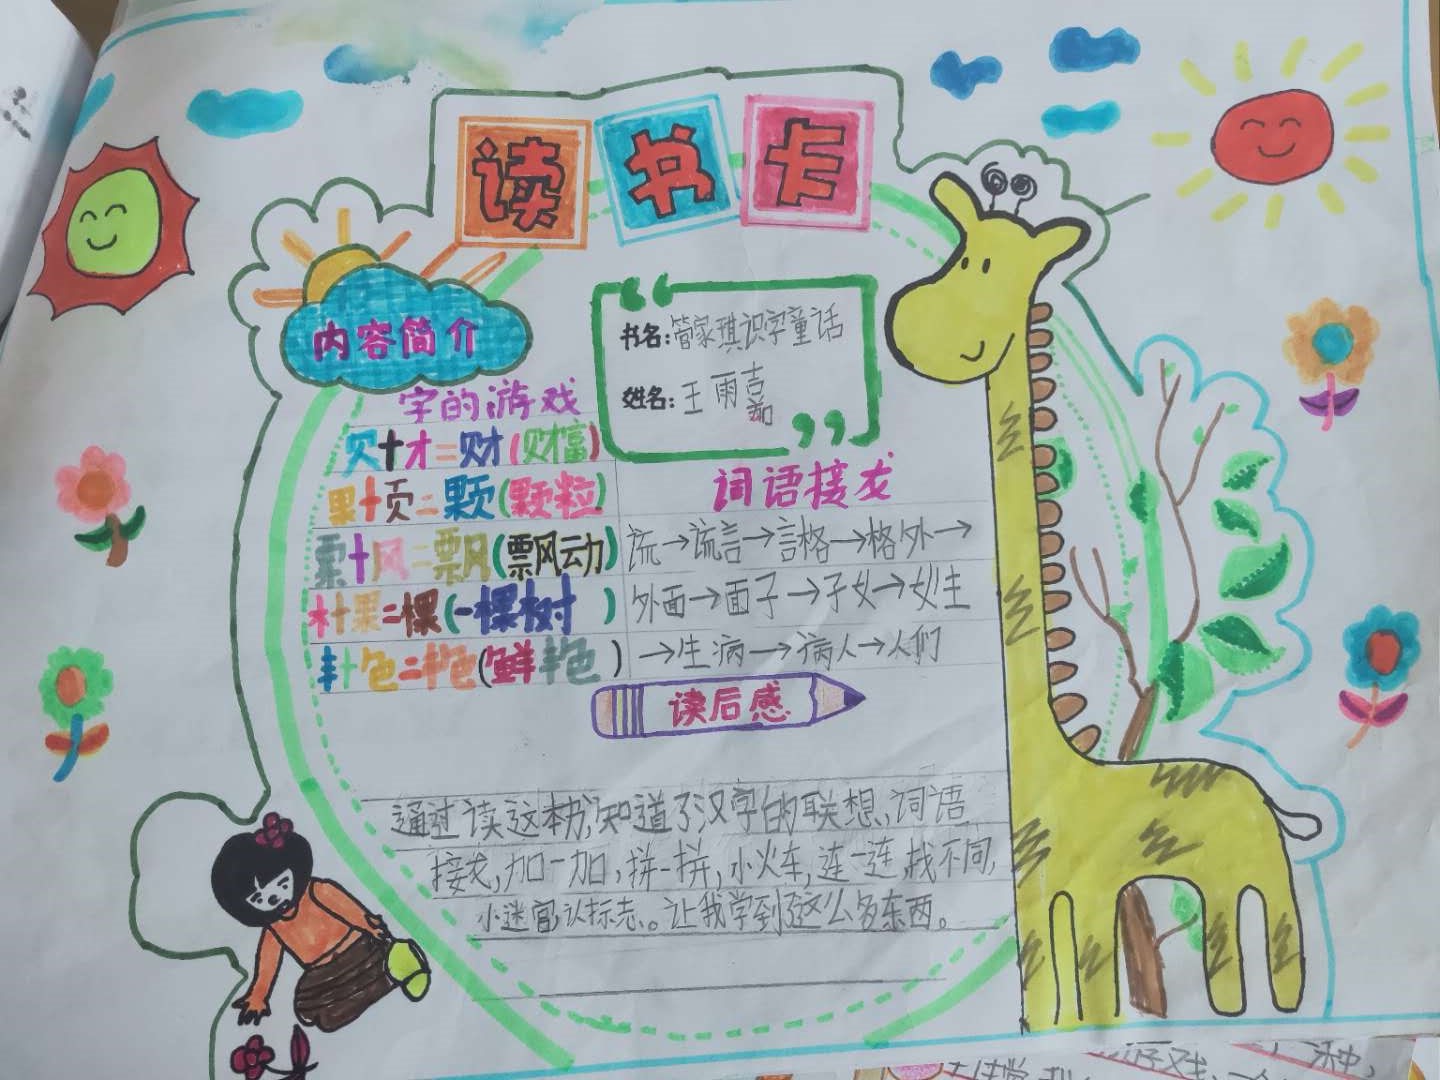 读书卡
内容简介
书名:管家琪识字童话
姓名:王雨嘉
字的游戏
贝+才=财(财富)
果+页=颗(颗粒)
票+风=飘(飘风动)
木+果=棵(一棵树)
丰+色=艳(鲜艳)
词语接龙
谎→谎言→言格→格外→
外面→面子→子女→女生
→生病→病人→人们
读后感
通过读这本书,知道了汉字的联想,词语
接龙,加一加,拼一拼,小火车,连一连,找不同,
小迷宫,认标志。让我学到这么多东西。